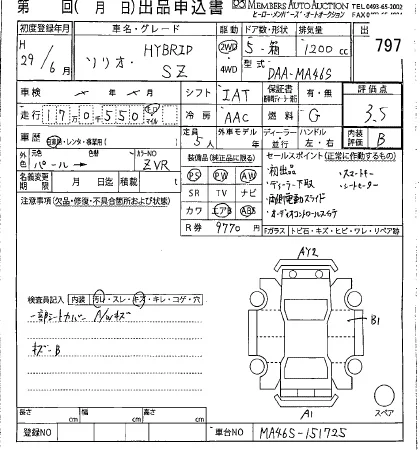 第 回( 月 日)出品申込書
MEMBERS AUTO AUCTION
ヒーロー・メンバーズ・オートオークション
TEL 0493-65-2002
初度登録年月
H 29/6月
車名・グレード
ソリオ・HYBRID SZ
駆動
2WD
4WD
ドア数・形状
5・箱
排気量
1200cc
型式
DAA-MA46S
出
797
車検 年 月
シフト IAT
保証書
有・無
評価点
3.5
走行 17万0千550
冷房 AAC
燃料 G
車歴
自家用・レンタ・事業用( )
定員 5人
外車モデル年 年
ディーラー
並行
ハンドル
左・右
内装評価
B
外色
元色
パール→
色替
カラーNO
ZVR
名義変更期限 月 日迄
積載 t
装備品(純正品に限る)
PS PW AW
SR TV ナビ
カワ エアB ABS
R券 9770円
セールスポイント(正常に作動するもの)
・初出品
・スマートキー
・ディーラー下取
・シートヒーター
・両側電動スライド
・オーディオコントロールステア
注意事項(欠品・修復・不具合箇所および状態)
Fガラス(トビ石・キズ・ヒビ・ワレ・リペア跡)
検査員記入(内装)汚れ・スレ・キズ・キレ・コゲ・穴
一部シートカバー A/Wキズ
キズ-B
AY2
B1
A1
スペア
長さ cm
幅 cm
高さ cm
登録NO
車台NO
MA46S-151725